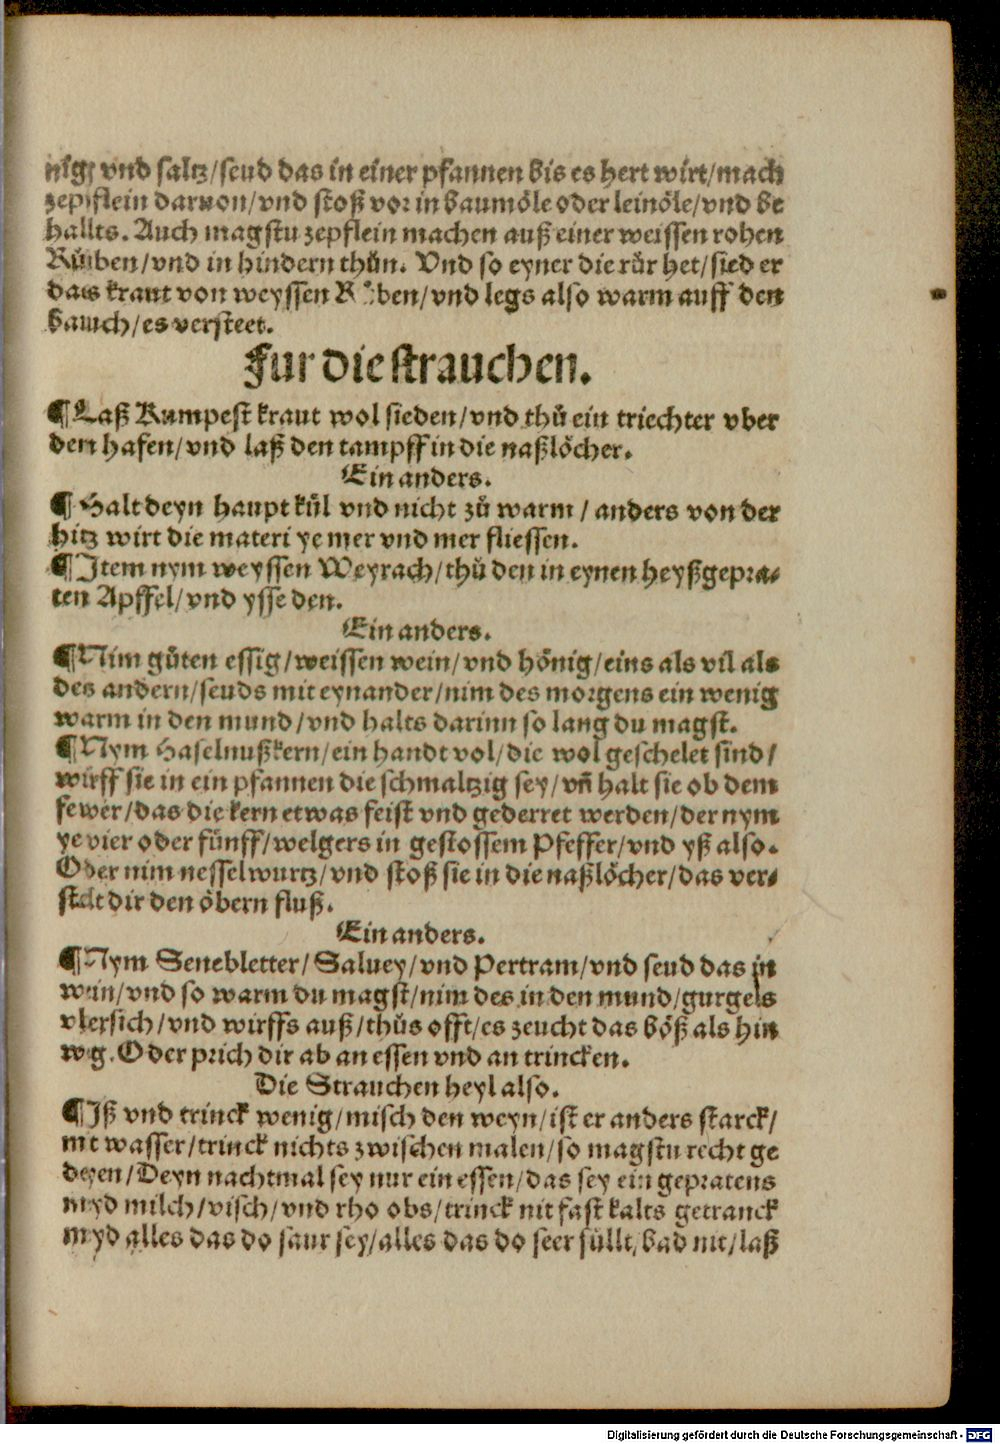 nig vnd saltz/seud das in einer pfannen bis es hert wirt/mach
zepfflein daruon/vnd stoß vor in baumöle oder leinöle/vnd be
hallts. Auch magstu zepflein machen auß einer weissen rohen
Rüben/vnd in hindern thůn. Vnd so eyner die růr het/sied er
das kraut von weyssen Růben/vnd legs also warm auff den
bauch/es versteet.
Fur die strauchen.
¶ Laß Kumpest kraut wol sieden/vnd thů ein triechter vber
den hafen/vnd laß den tampff in die naßlöcher.
Ein anders.
¶ Halt deyn haupt kůl vnd nicht zů warm / anders von der
hitz wirt die materi ye mer vnd mer fliessen.
¶ Item nym weyssen Weyrach/thů den in eynen heyßgepra⸗
ten Apffel/vnd ysse den.
Ein anders.
¶ Nim gůten essig/weissen wein/vnd hönig/eins als vil als
des andern/seuds mit eynander/nim des morgens ein wenig
warm in den mund/vnd halts darinn so lang du magst.
¶ Nym Haselnußkern/ein handt vol/die wol geschelet sind/
wirff sie in ein pfannen die schmaltzig sey/vñ halt sie ob dem
fewer/das die kern etwas feist vnd gederret werden/der nym
ye vier oder fünff/welgers in gestossem Pfeffer/vnd yß also.
Oder nim nesselwurtz/vnd stoß sie in die naßlöcher/das ver⸗
stelt dir den öbern fluß.
Ein anders.
¶ Nym Senebletter/Saluey/vnd Pertram/vnd seud das in
wein/vnd so warm du magst/nim des in den mund/gurgels
vbersich/vnd wirffs auß/thůs offt/es zeucht das böß als hin
weg. Oder prich dir ab an essen vnd an trincken.
Die Strauchen heyl also.
¶ Iß vnd trinck wenig/misch den weyn/ist er anders starck/
mit wasser/trinck nichts zwischen malen/so magstu recht ge
deyen/Deyn nachtmal sey nur ein essen/das sey ein gepratens
myd milch/visch/vnd rho obs/trinck nit fast kalts getranck
myd alles das do saur sey/alles das do seer füllt/bad nit/laß
Digitalisierung gefördert durch die Deutsche Forschungsgemeinschaft - DFG